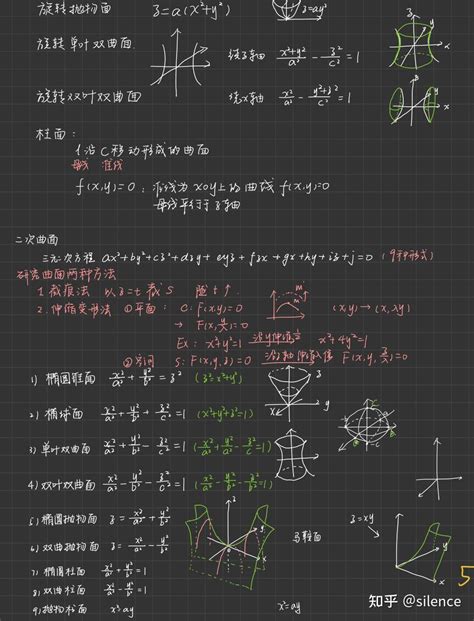 旋转抛物面 z=a(x²+y²) z=ay²
旋转单叶双曲面 绕z轴 x²+y²/a² - z²/c² = 1
旋转双叶双曲面 绕x轴 x²/a² - y²+z²/c² = 1
柱面:
l 沿 C 移动形成的曲面
母线 准线
f(x,y)=0: 准线为xoy上的曲线 f(x,y)=0
母线平行于z轴
二次曲面
三元二次方程 ax²+by²+cz²+dxy+eyz+fzx+gx+hy+iz+j=0 (9种形式)
研究曲面两种方法
1. 截痕法 以z=t截S 随t↑.
2. 伸缩变形法 ①平面: C: F(x,y)=0 (x,y)→(x,λy)
→ F(x, y/λ)=0
Ex: x²+y²=1 沿y伸缩 ½ x²+4y²=1
②空间 S: F(x,y,z)=0 F(x,y,z/λ)=0
1) 椭圆锥面 x²/a²+y²/b²=z² (z²=x²+y²)
2) 椭球面 x²/a²+y²/b²+z²/c²=1 (x²+y²+z²=1)
3) 单叶双曲面 x²/a²+y²/b²-z²/c²=1 (x²/a²+y²/a²-z²/c²=1)
4) 双叶双曲面 x²/a²-y²/b²-z²/c²=1
5) 椭圆抛物面 z=x²/a²+y²/b²
6) 双曲抛物面 z=x²/a²-y²/b² 马鞍面 z=xy
7) 椭圆柱面 x²/a²+y²/b²=1
8) 双曲柱面 x²/a²-y²/b²=1
9) 抛物柱面 x²=ay x²=ay
5
知乎 @silence